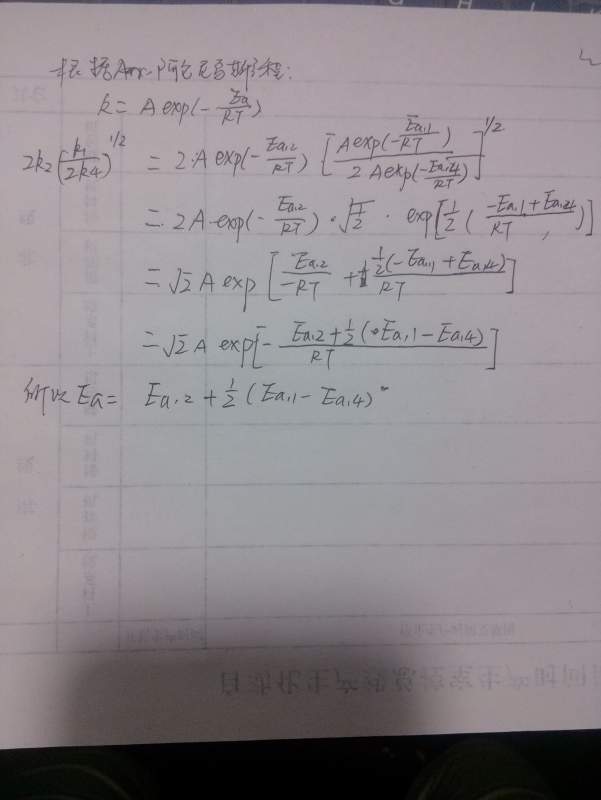 根据Arr.阿仑尼乌斯方程:
k = A exp(-Ea/RT)
2k2(k1/2k4)^1/2 = 2·A exp(-Ea,2/RT) [A exp(-Ea,1/RT) / 2A exp(-Ea,4/RT)]^1/2
= 2A·exp(-Ea,2/RT)·√1/2 · exp[1/2(-Ea,1+Ea,4/RT)]
= √2 A exp[Ea,2/-RT + 1/2(-Ea,1+Ea,4)/RT]
= √2 A exp[-Ea,2+1/2(Ea,1-Ea,4)/RT]
所以Ea = Ea,2+1/2(Ea,1-Ea,4)